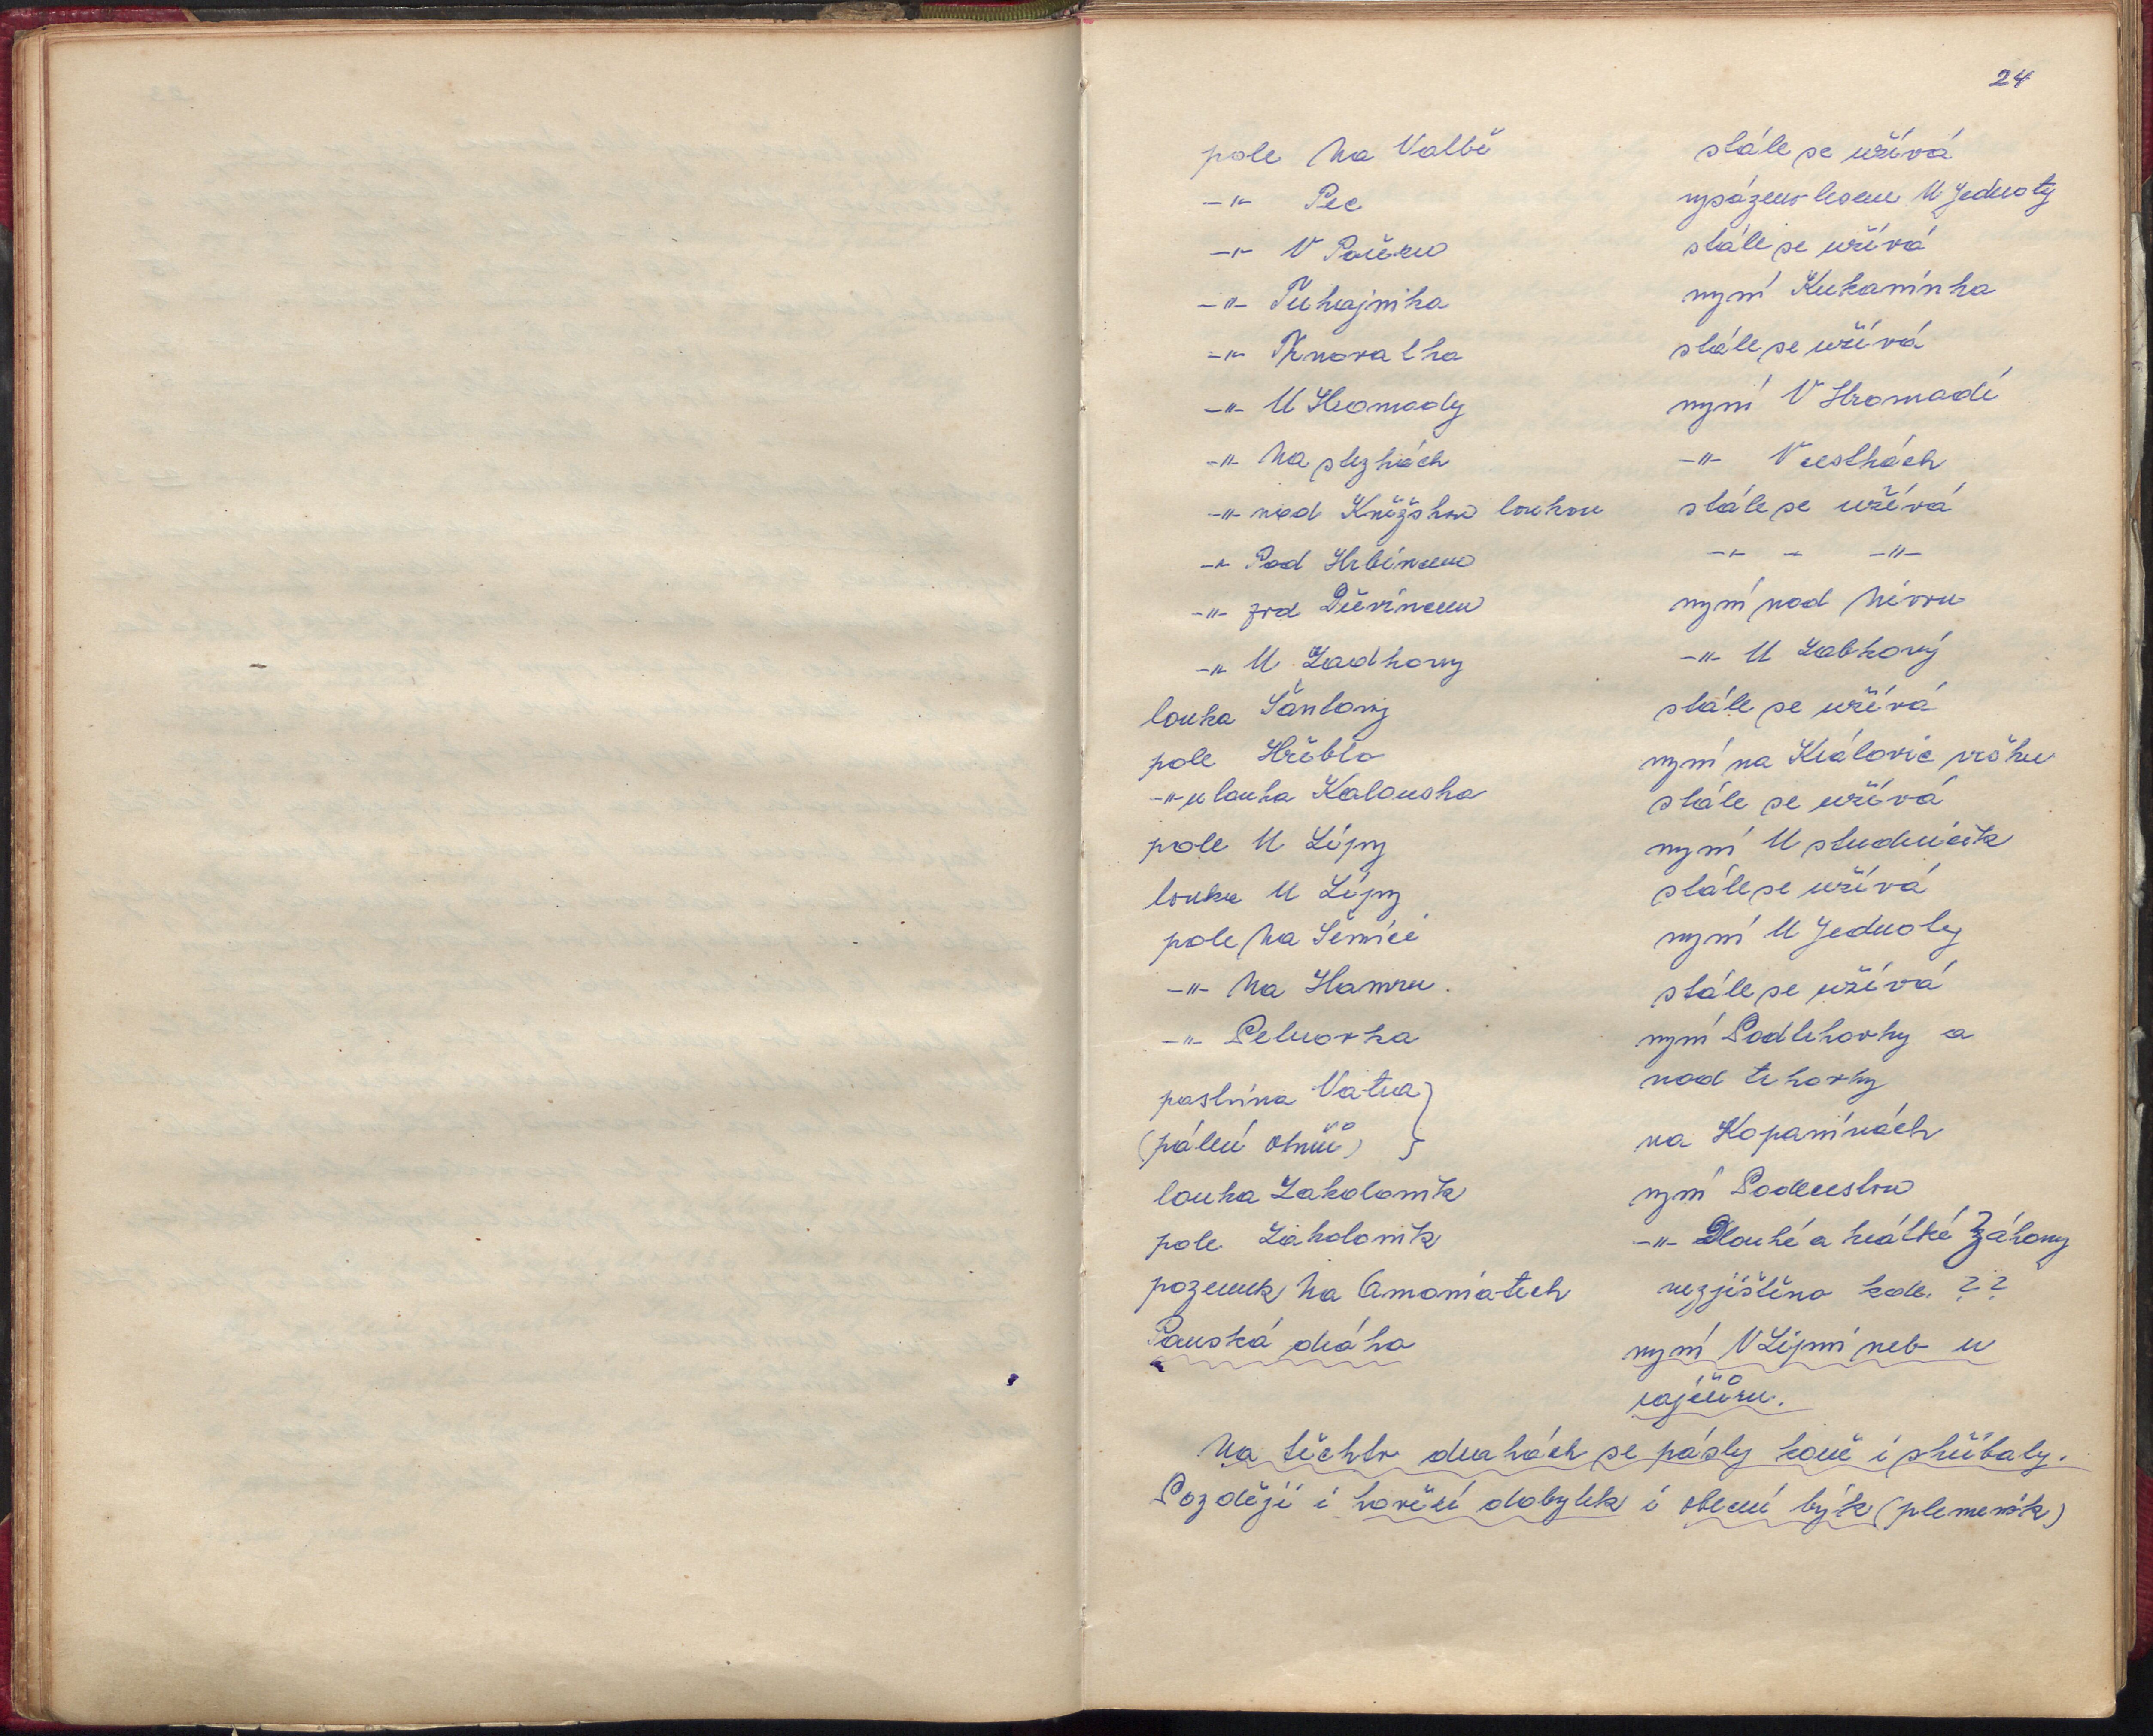 24
pole Na Valbě stále se užívá
-"- Pec vysázeno lesem U Jednoty
-"- V stále se užívá
-"- Tuhajnika nyní Kukanínka
-"- stále se užívá
-"- U Hromady nyní V Hromadě
-"- Na stezkách -"- V cestkách
-"- nad Kněžskou loukou stále se užívá
-"- Pod Hrbincem -"- - -"-
-"- pod Děvíncem nyní nad Nivou
-"- U Zadkovny -"- U Zabkový
louka Šantovy stále se užívá
pole Hřeblo nyní na Královic vršku
-"- u louka Kalouska stále se užívá
pole U Lípy nyní U studniček
louka U Lípy stále se užívá
pole Na Šemíci nyní U Jednoty
-"- Na Hamru. stále se užívá
-"- Peluorka nyní Podlehovky a
nad lehovky
pastvina Vatra }
(pálení ohňů) } na Kopanínách
louka Zakolomik nyní Podcestou
pole Zakolomik -"- Dlouhé a krátké Záhony
pozemek Na Amoniatech nezjištěno kde. ??
Panská dráha nyní V Lipní neb u
rajčůru.
Na těchto drahách se pásly koně i shříbaly.
Později i hovězí dobytek i obecní býk (plemeník)